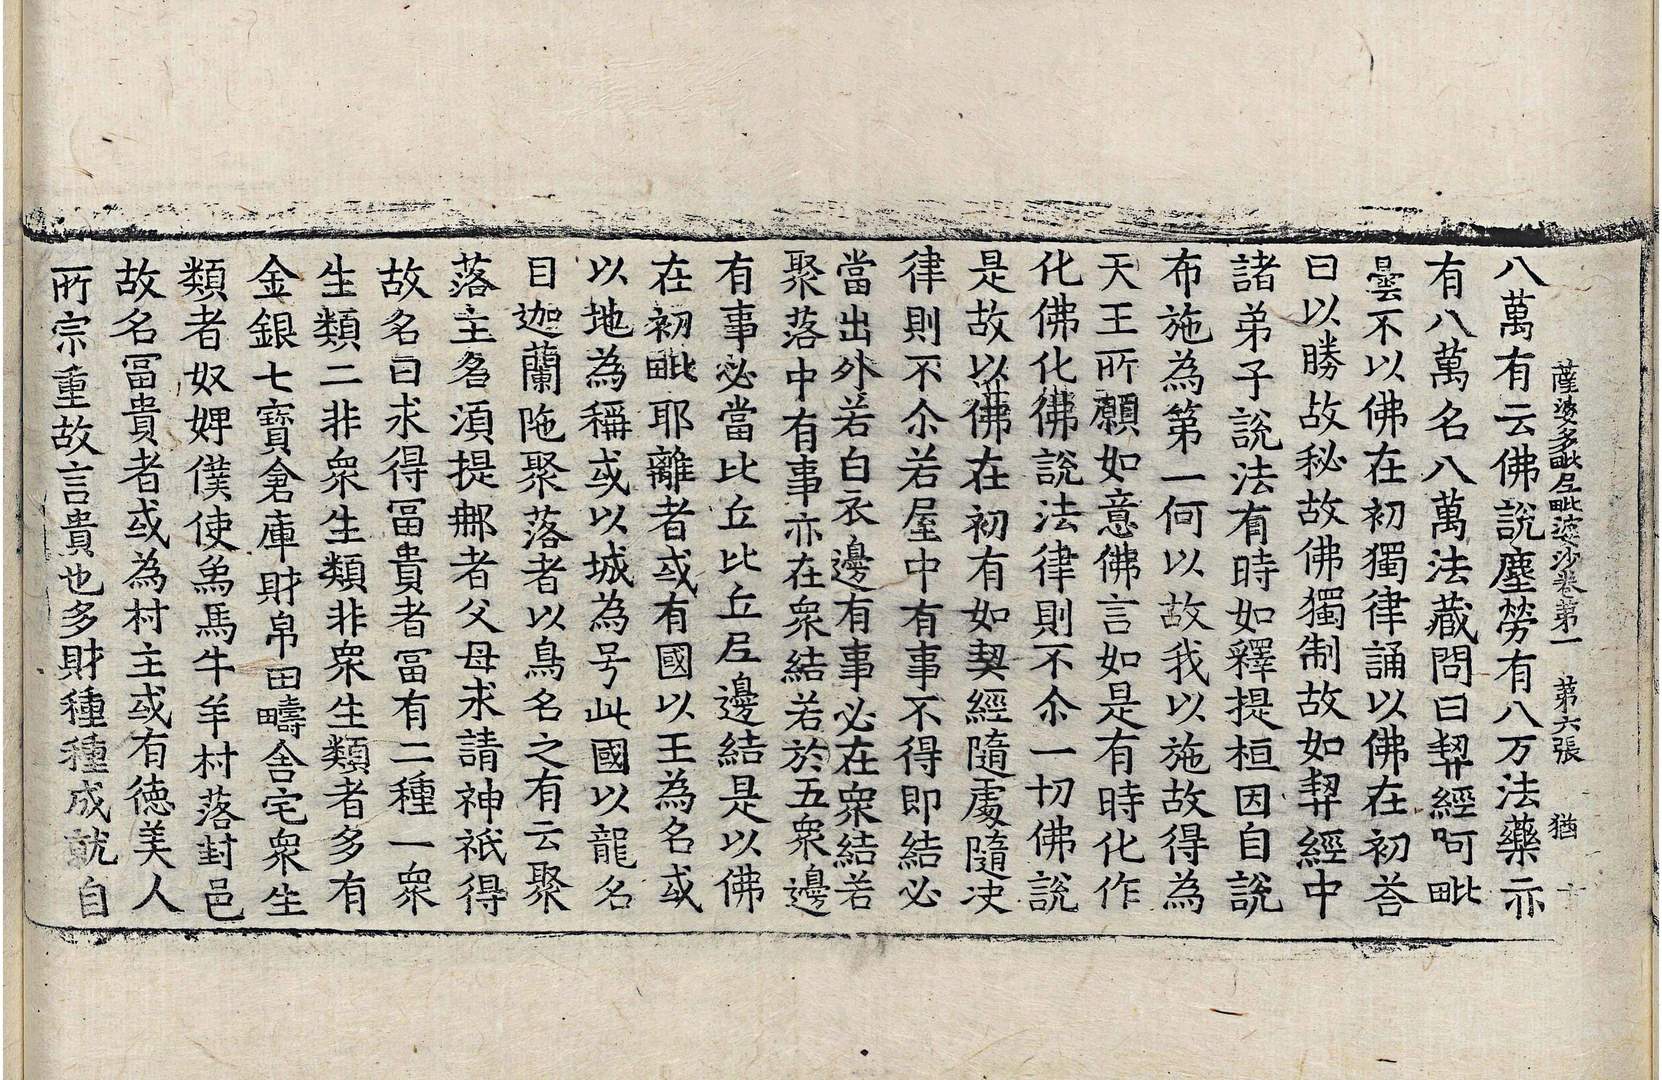 薩婆多毗尼毗婆沙卷第一　第六張　猶
八萬有云佛說塵勞有八万法藥亦
有八萬名八萬法藏問曰契經阿毗
曇不以佛在初獨律誦以佛在初荅
曰以勝故秘故佛獨制故如契經中
諸弟子說法有時如釋提桓因自說
布施為第一何以故我以施故得為
天王所願如意佛言如是有時化作
化佛化佛說法律則不尒一切佛說
是故以佛在初有如契經隨處隨决
律則不尒若屋中有事不得即結必
當出外若白衣邊有事必在眾結若
聚落中有事亦在眾結若於五眾邊
有事必當比丘比丘尼邊結是以佛
在初毗耶離者或有國以王為名或
以地為稱或以城為号此國以龍名
目迦蘭陁聚落者以鳥名之有云聚
落主名湏提那者父母求請神祇得
故名曰求得冨貴者冨有二種一眾
生類二非眾生類非眾生類者多有
金銀七寶倉庫財帛田疇舍宅眾生
類者奴婢僕使象馬牛羊村落封邑
故名冨貴者或為村主或有徳美人
所宗重故言貴也多財種種成就自